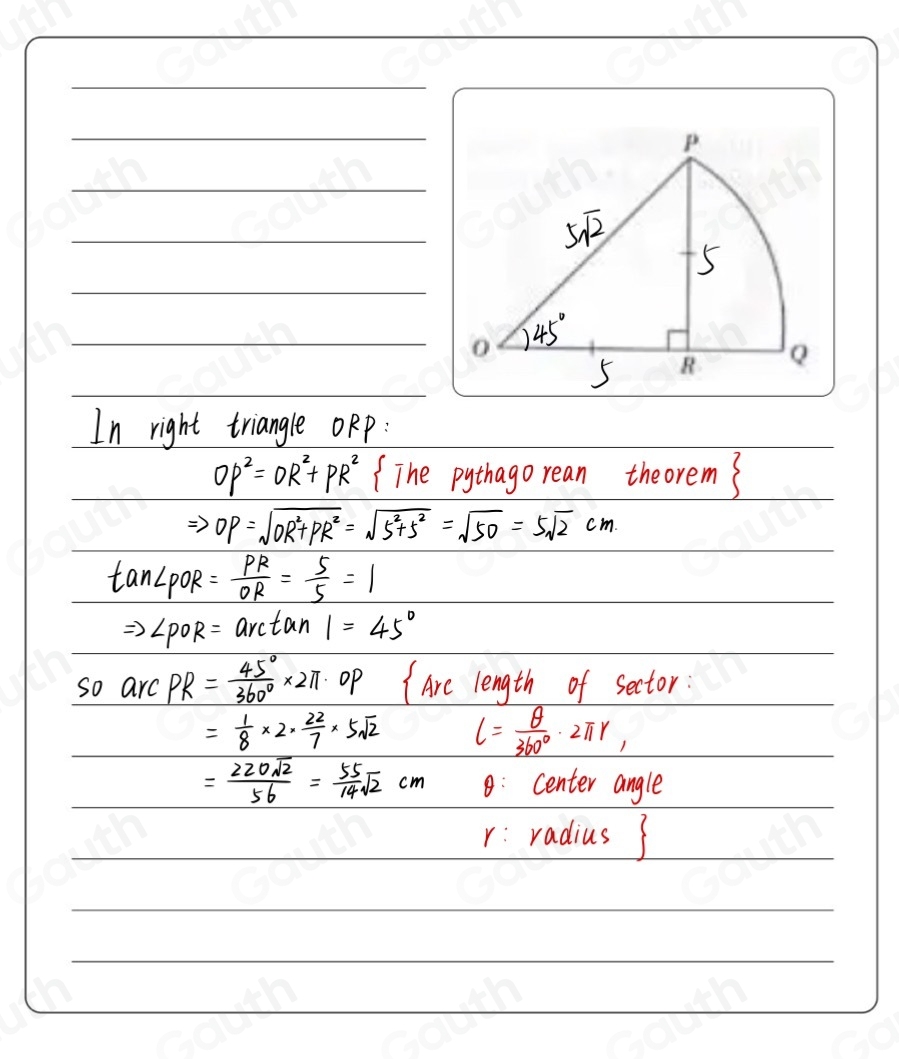 P
5√2
5
45°
O
R
Q
5
In right triangle ORP:
OP² = OR² + PR² {The pythagorean theorem}
=> OP = √OR²+PR² = √5²+5² = √50 = 5√2 cm.
tan∠POR = PR/OR = 5/5 = 1
=> ∠POR = arctan 1 = 45°
so arc PR = 45°/360° × 2π · OP {Arc length of sector:
= 1/8 × 2 × 22/7 × 5√2 l = θ/360° · 2πr,
= 220√2/56 = 55/14 √2 cm θ: Center angle
r: radius }
Gauth